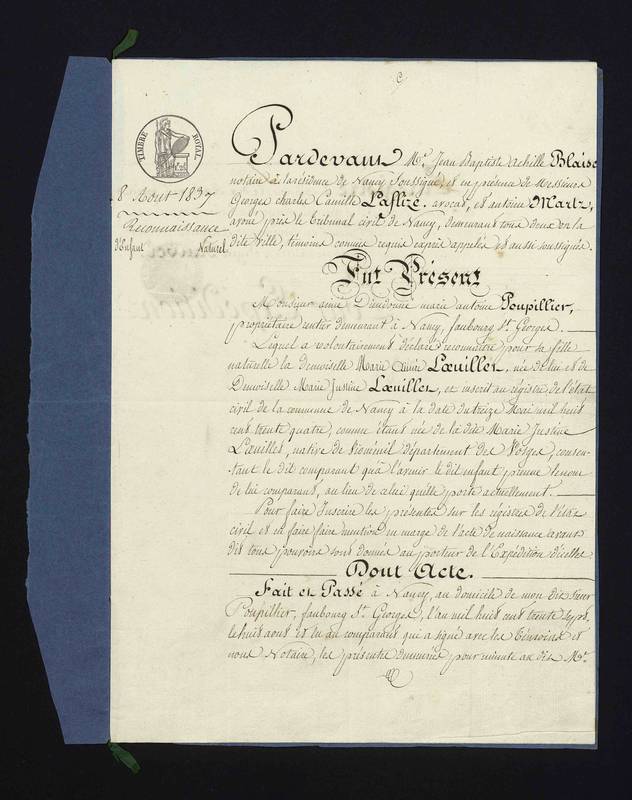 TIMBRE ROYAL
8 Aout 1837
Reconnaissance
d'Enfant Naturel
Pardevant Mᵉ. Jean Baptiste achille Blaise
notaire à la résidence de Nancy Soussigné, et en présence de Messieurs
Georges charles Camille Laflize, avocat, et antoine Martz,
avoué près le tribunal civil de Nancy, demeurant tous deux en la
dite Ville, témoins connus requis exprès appelés et aussi soussignés.
Fut Présent
Monsieur aimé Dieudonné marie antoine Poupillier,
propriétaire rentier demeurant à Nancy, faubourg St. Georges.
Lequel a volontairement déclaré reconnaitre pour sa fille
naturelle la demoiselle Marie Lœuillet, née de lui et de
Demoiselle Marie Justine Lœuillet, et inscrit au régistre de l'état
civil de la commune de Nancy à la date du treize Mai mil huit
cent trente quatre, comme étant née de la dite Marie Justine
Lœuillet, native de département des Vosges, consen-
tant le dit comparant qu'à l'avenir le dit enfant prenne le nom
de lui comparant, au lieu de celui qu'elle porte actuellement.
Pour faire Inscrire les présentes sur les régistres de l'état
civil et en faire faire mention en marge de l'acte de naissance avant
dit tous pouvoirs sont donnés au porteur de l'Expédition d'icelles
Dont Acte.
Fait et Passé à Nancy, au domicile de mon dit sieur
Poupillier, faubourg St. Georges, l'an mil huit cent trente sept,
le huit aout et en au comparant qui a signé avec les témoins et
nous Notaire, les présentes demeurées pour minute au dit Mᵉ.